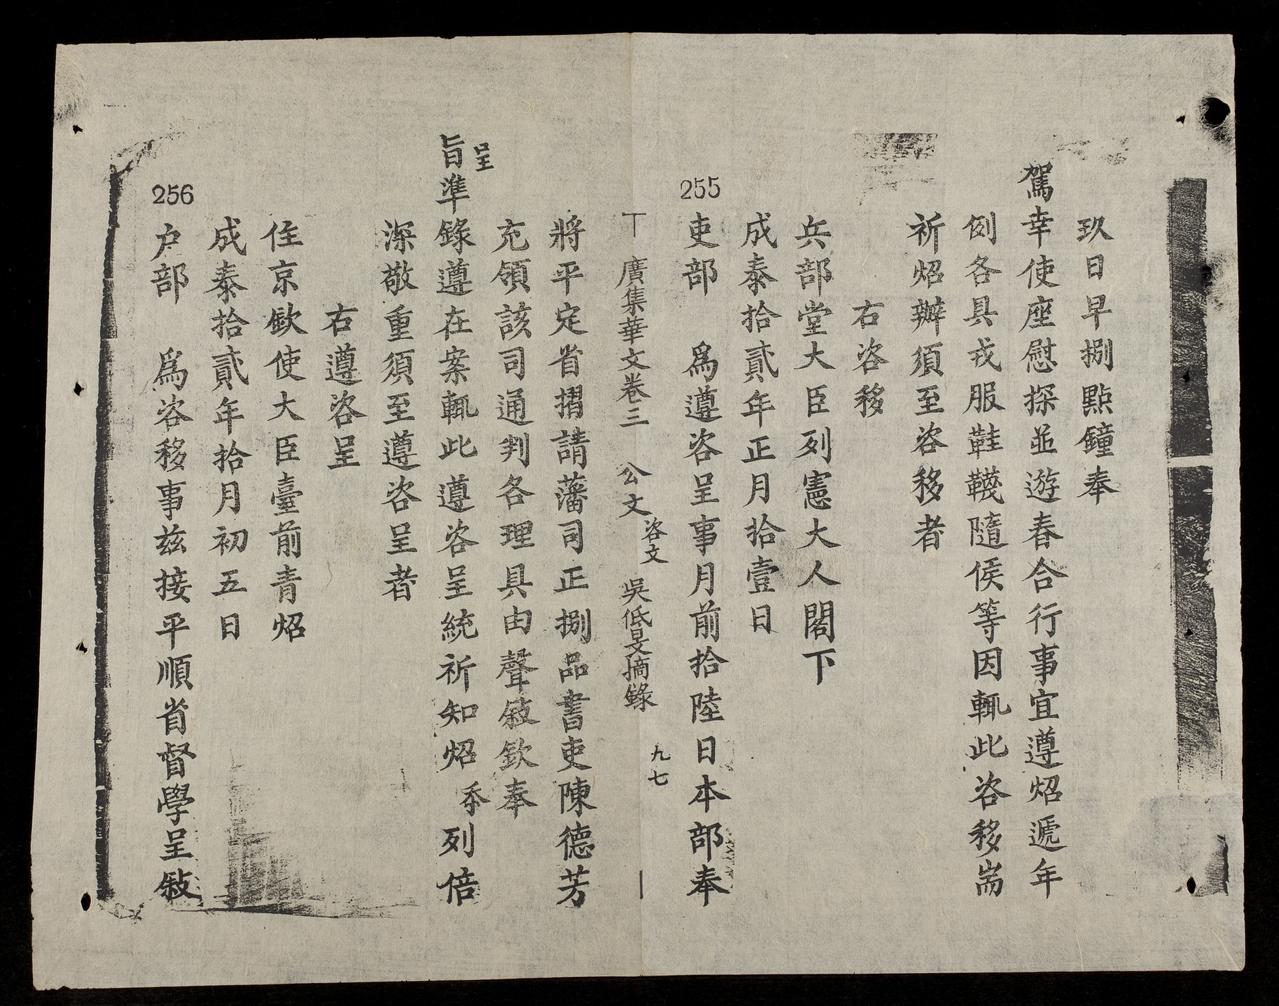 玖日早捌點鐘奉
駕幸使座慰探並遊春合行事宜遵炤遞年
例各具戎服鞋韈隨侯等因輒此咨移耑
祈炤辦須至咨移者
右咨移
兵部堂大臣列憲大人閣下
成泰拾貳年正月拾壹日
255
吏部 爲遵咨呈事月前拾陸日本部奉
廣集華文卷三 公文 咨文 吳低旻摘錄 九七
將平定省摺請藩司正捌品書吏陳德芳
充領該司通判各理具由聲敍欽奉
旨準錄遵在案輒此遵咨呈統祈知炤忝列倍
呈
深敬重須至遵咨呈者
右遵咨呈
住京欽使大臣臺前青炤
成泰拾貳年拾月初五日
256
户部 爲咨移事茲接平順省督學呈敍